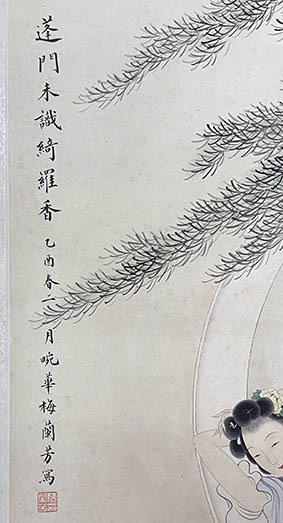 蓬門未識綺羅香乙酉春二月畹華梅蘭芳寫